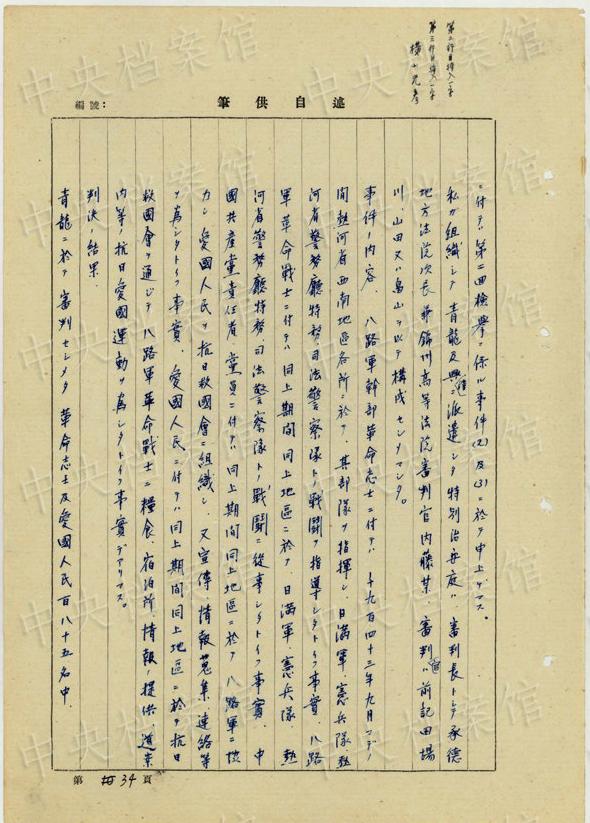 第二行目挿入一字
第三行目挿入一字
横山光彦
編號：
筆供自述
ニ付テハ第二回検挙ニ係ル事件(2)及(3)ニ於テ申上ゲマス。
私ガ組織シテ青龍及興隆ニ派遣シタ特別治安庭ハ、審判長トシテ承德
地方法院次長兼錦州高等法院審判官内藤某、審判官ハ前記田場
川、山田又ハ鳥山ヲ以テ構成センマシタ。
事件ノ内容、八路軍幹部革命志士ニ付テハ、千九百四十三年九月マデノ
間熱河省西南地區各所ニ於テ、其部隊ヲ指揮シ、日満軍、憲兵隊、熱
河省警務廳特務、司法警察隊トノ戰鬪ヲ指導シタトイフ事實、八路
軍革命戰士ニ付テハ同上期間同上地區ニ於テ、日満軍、憲兵隊、熱
河省警務廳特務、司法警察隊トノ戰鬪ニ從事シタトイフ事實、中
國共産黨責任者、黨員ニ付テハ同上期間同上地區ニ於テ八路軍ニ協
力シ、愛國人民ヲ抗日救國會ニ組織シ、又宣傳、情報蒐集、連絡等
ヲ為シタトイフ事實、愛國人民ニ付テハ同上期間同上地區ニ於テ抗日
救國會ヲ通ジテ八路軍革命戰士ニ糧食、宿泊所、情報ノ提供、道案
内等ノ抗日愛國運動ヲ為シタトイフ事實デアリマス。
判決ノ結果、
青龍ニ於テ審判セシメタ革命志士及愛國人民百八十五名中、
第 34 頁
中央档案馆